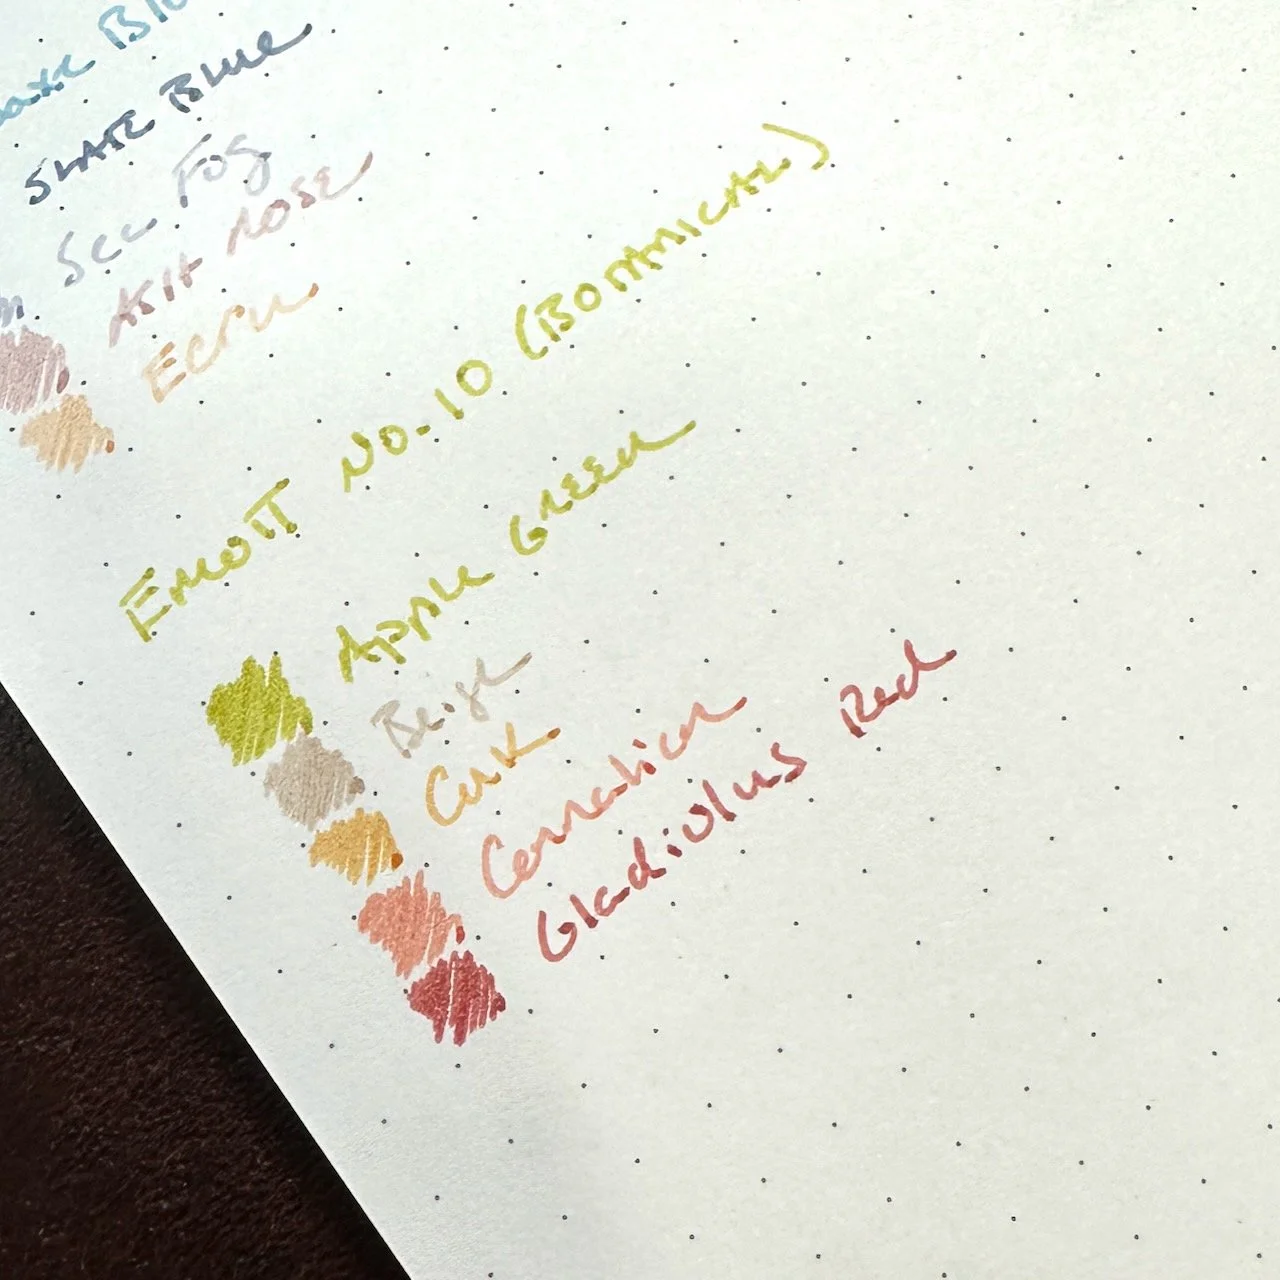 Blu
SLATE BLUE
Sea Fog
ASH ROSE
ECru
EMOTT No. 10 (BOTANICAL)
Apple GREEN
Beige
Cork
Carnation
Gladiolus Red